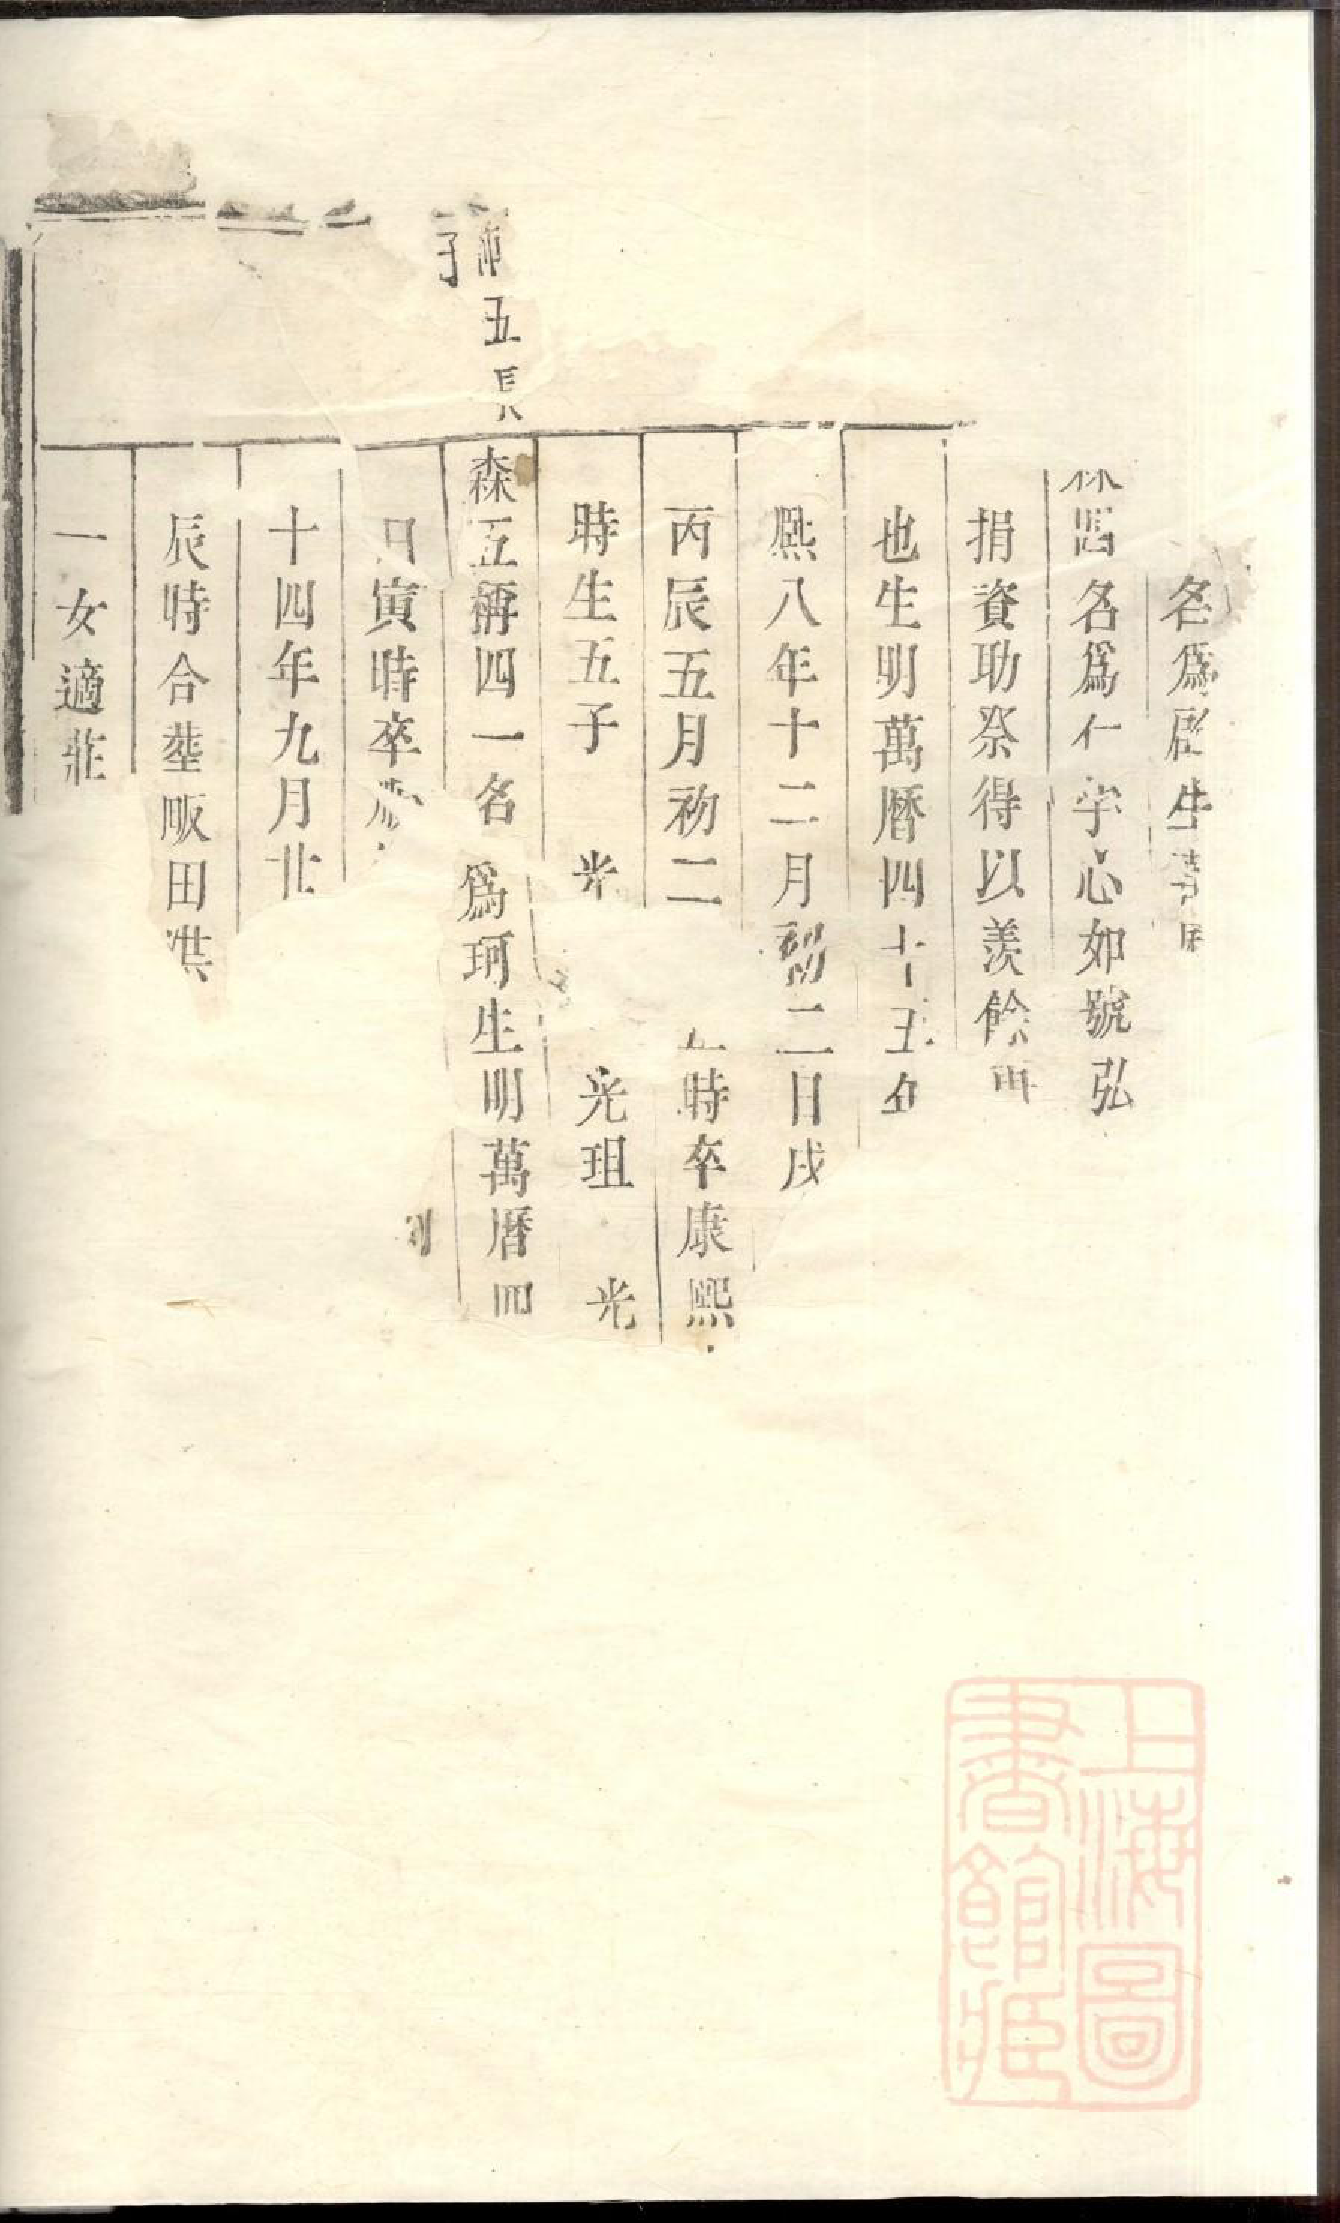 名爲啟生
名爲仁字心如號弘
捐資助祭得以羨餘
也生明萬曆四十五
熙八年十二月初二日戌
丙辰五月初二
時卒康熙
時生五子 光
光珇 光
五長
森五稱四一名爲珂生明萬曆四
日寅時卒
十四年九月廿
辰時合塟畈田洪
一女適莊
上海圖
書館藏